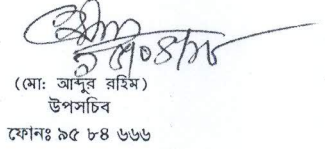 (মো: আব্দুর রহিম)
উপসচিব
ফোনঃ ৯৫ ৮৪ ৬৬৬